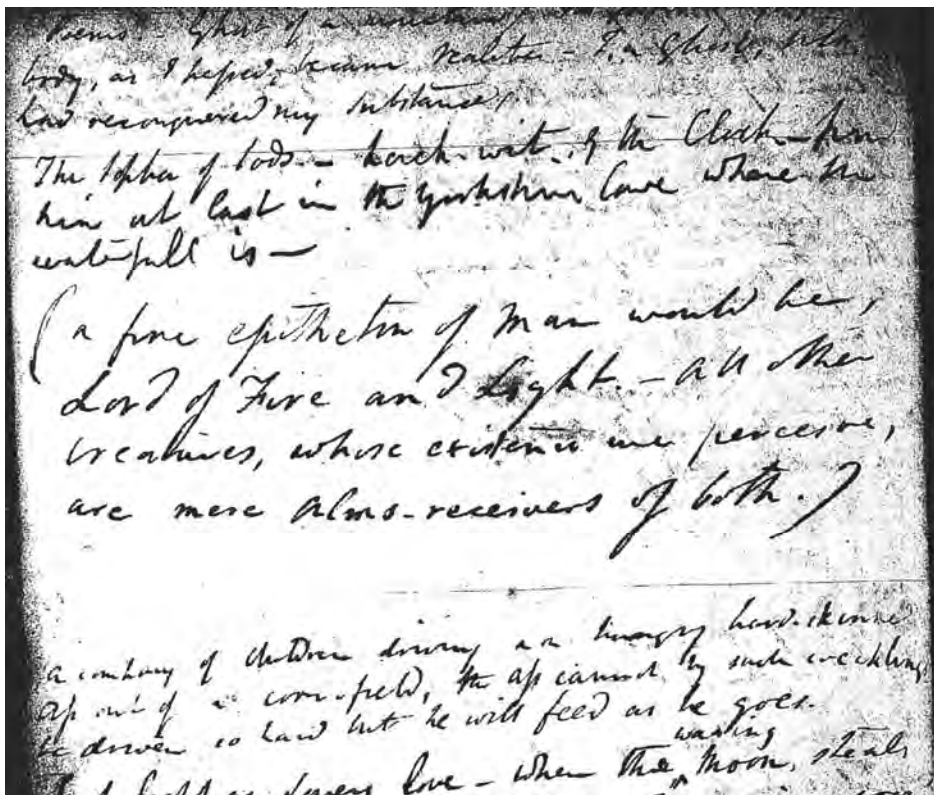 Poems. - Ghost of a mountain
body, as I passed, became realities - I, a Ghost, till
had reconquered my Substance,
The of tods - torch with of the Clock -
him at last in the Yorkshire Cave where the
waterfall is -
(a fine epitheton of Man would be,
Lord of Fire and Light. - all other
creatures, whose existence we perceive,
are mere alms-receivers of both.)
a company of children driving an hungry hard-skinned
ass out of a corn-field, the ass cannot by such weaklings
be driven so hard but he will feed as he goes.
waning
love - when the Moon, steals